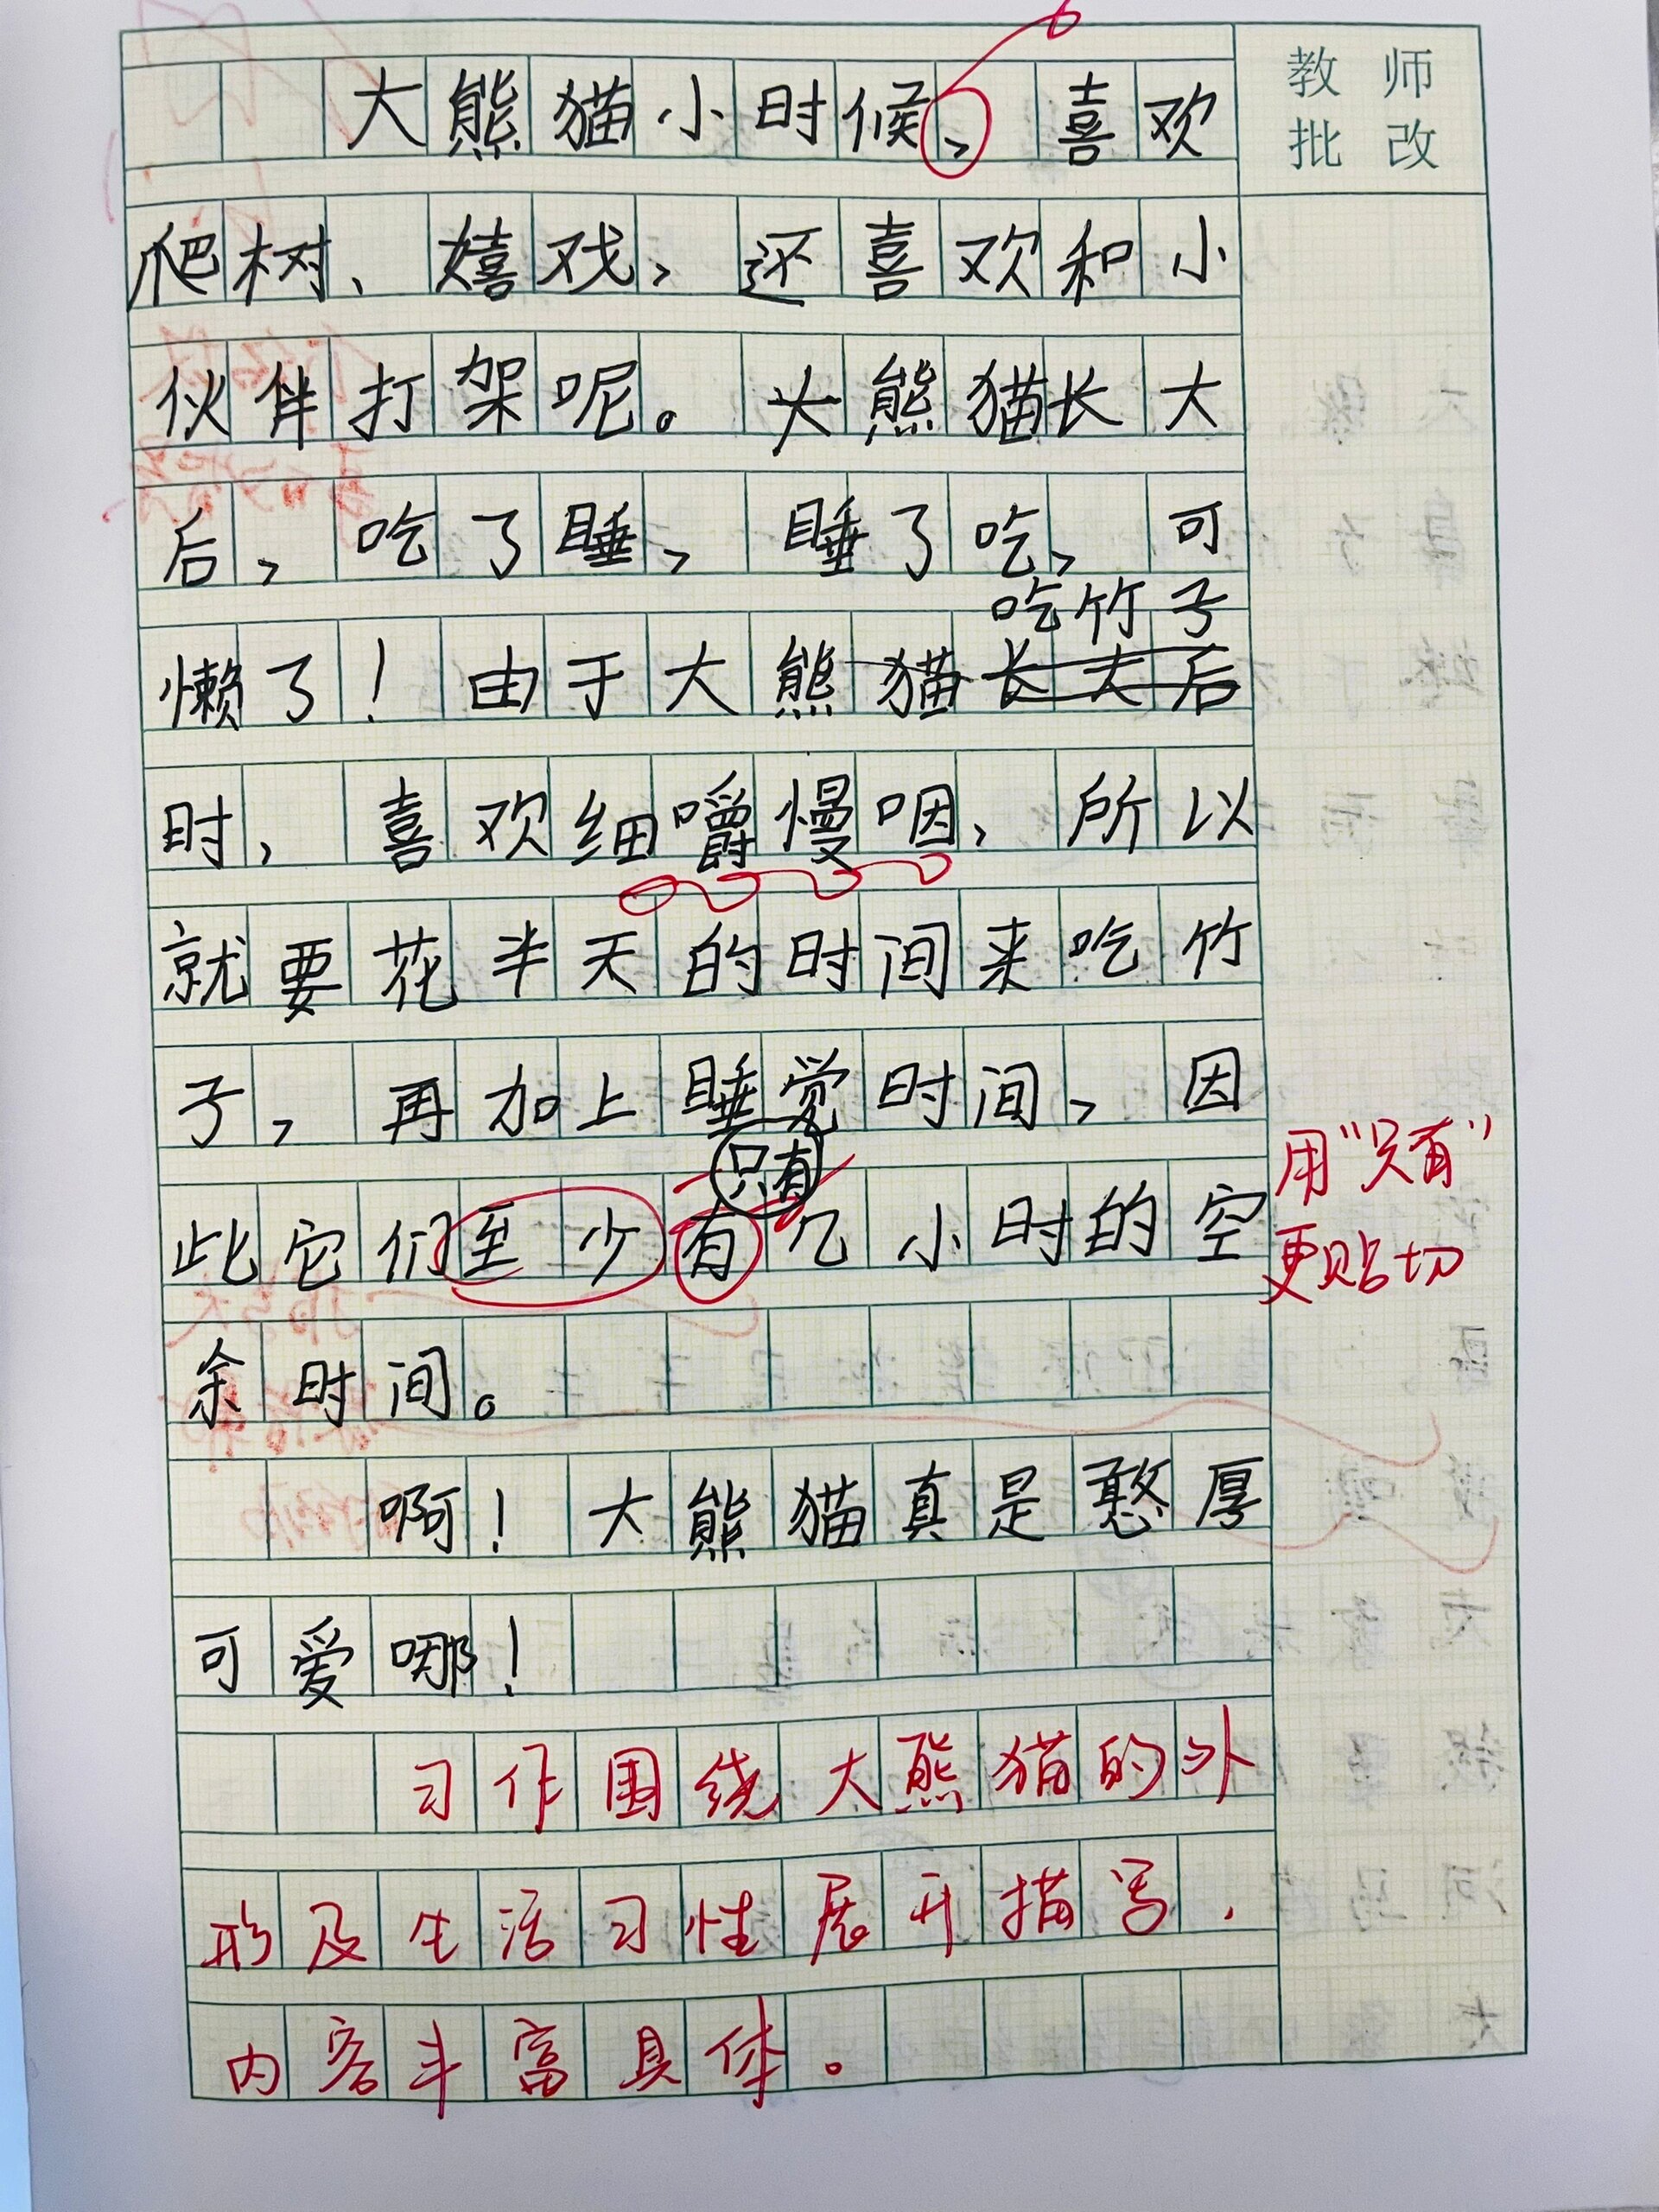 教师
批改
大熊猫小时候，喜欢
爬树、嬉戏，还喜欢和小
伙伴打架呢。大熊猫长大
后，吃了睡，睡了吃，可
吃竹子
懒了！由于大熊猫长大后
时，喜欢细嚼慢咽，所以
就要花半天的时间来吃竹
子，再加上睡觉时间，因
只有
此它们至少有几小时的空
用“只有”
更贴切
余时间。
啊！大熊猫真是憨厚
可爱哪！
习作围绕大熊猫的外
形及生活习性展开描写，
内容丰富具体。